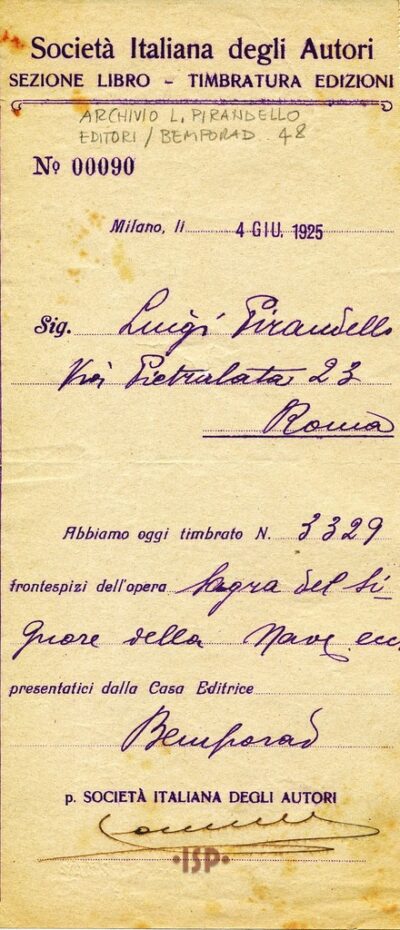 Società Italiana degli Autori
SEZIONE LIBRO – TIMBRATURA EDIZIONI
ARCHIVIO L. PIRANDELLO
EDITORI / BEMPORAD 48
Nº 00090
Milano, li 4 GIU. 1925
Sig. Luigi Pirandello
Via Pietralata 23
Roma
Abbiamo oggi timbrato N. 3329
frontespizi dell'opera Sagra del Si
gnore della Nave ecc.
presentatici dalla Casa Editrice
Bemporad
p. SOCIETÀ ITALIANA DEGLI AUTORI
•ISP•